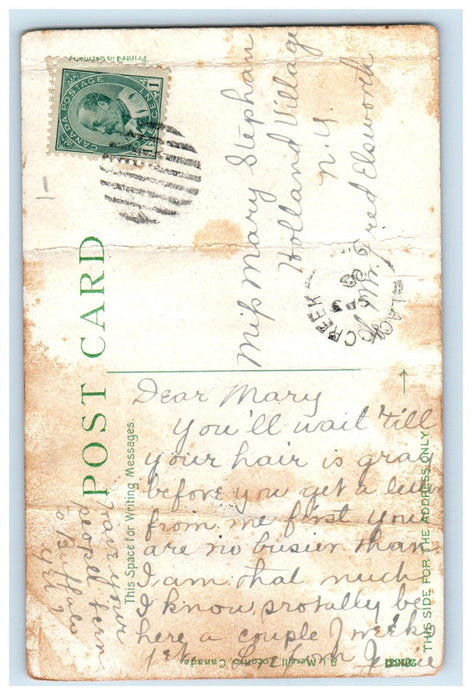 Printed in Germany
CANADA POSTAGE
1 1
ONE CENT
Miss Mary Stephan
Holland Village
N. Y
℅ Mr. Fred Elsworth
BLACK CREEK
SP 3
09
POST CARD
This Space for Writing Messages.
THIS SIDE FOR THE ADDRESS ONLY.
Dear Mary
You'll wait 'till
your hair is gray
before you get a letter
from me first you
are no busier than
I am that much
I know, probally be
here a couple of weeks
yet. from Jennie
have your
people
to Buffalo
yet?
Toronto Canada